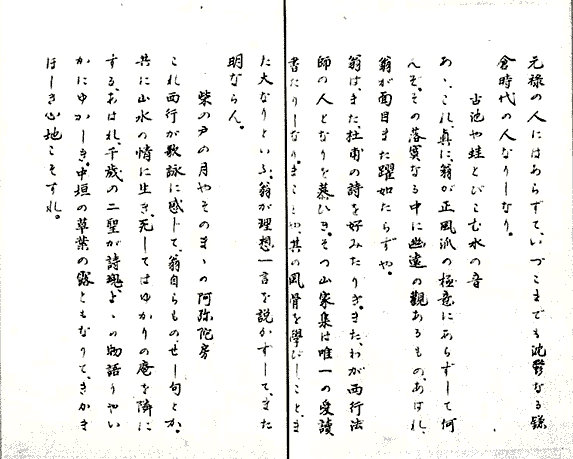 元禄の人にはあらずて、いづこまでも沈鬱なる鎌
倉時代の人なりしなり。
古池や蛙とびこむ水の音
あゝ、これ、真に、翁が正風派の極意にあらずして何
んぞ。その落寞なる中に幽遠の観あるもの、あはれ、
翁が面目また躍如たらずや。
翁は、また杜甫の詩を好みたりき。また、わが西行法
師の人となりを慕ひき。その山家集は唯一の愛読
書たりしなり。まことや、其の風骨を学びしこと、ま
た大なりといふ。翁が理想一言を説かずして、また
明ならん。
柴の戸の月やそのまゝの阿弥陀房
これ西行が歌詠に感じて、翁自らものせし一句とか。
共に山水の情に生き、死してはゆかりの庵を隣に
する、あはれ、千歳の二聖が詩魂、よゝの物語りやい
かにゆかしき。中垣の草葉の露ともなりて、きかま
ほしき心地こそすれ。